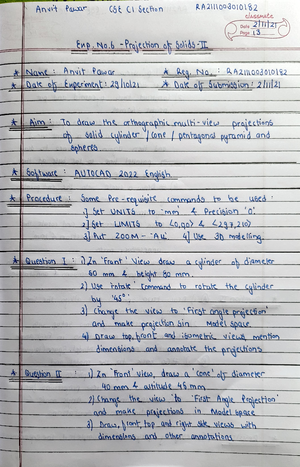 Anvit Pawar CSE C1 Section RA2111003010182
classmate
Date 2/11/21
Page 13
Exp. No.6 - Projection of Solids-II
* Name : Anvit Pawar * Reg. No. : RA2111003010182
* Date of Experiment: 29/10/21 * Date of Submission: 2/11/21
* Aim : To draw the orthographic multi-view projections
of solid cylinder / cone / pentagonal pyramid and
spheres
* Software : AUTOCAD 2022 English
* Procedure : Some Pre-requisite commands to be used :
1) Set UNITS to 'mm' & Precision '0'.
2) Set LIMITS to <0,0> & <297,210>
3) Put ZOOM - 'ALL' 4) Use 3D modelling.
* Question I : 1) In 'Front' View draw a cylinder of diameter
40 mm & height 80 mm.
2) Use 'rotate' Command to rotate the cylinder
by '45°'
3) Change the view to 'First angle projection'
and make projections in Model space
4) Draw top, front and isometric views, mention
dimensions and annotate the projections
* Question II : 1) In 'Front' view, draw a 'cone' of diameter
40 mm & altitude 45 mm
2) Change the view to 'First Angle Projection'
and make projections in Model space
3) Draw, front, top and right side views with
dimensions and other annotations